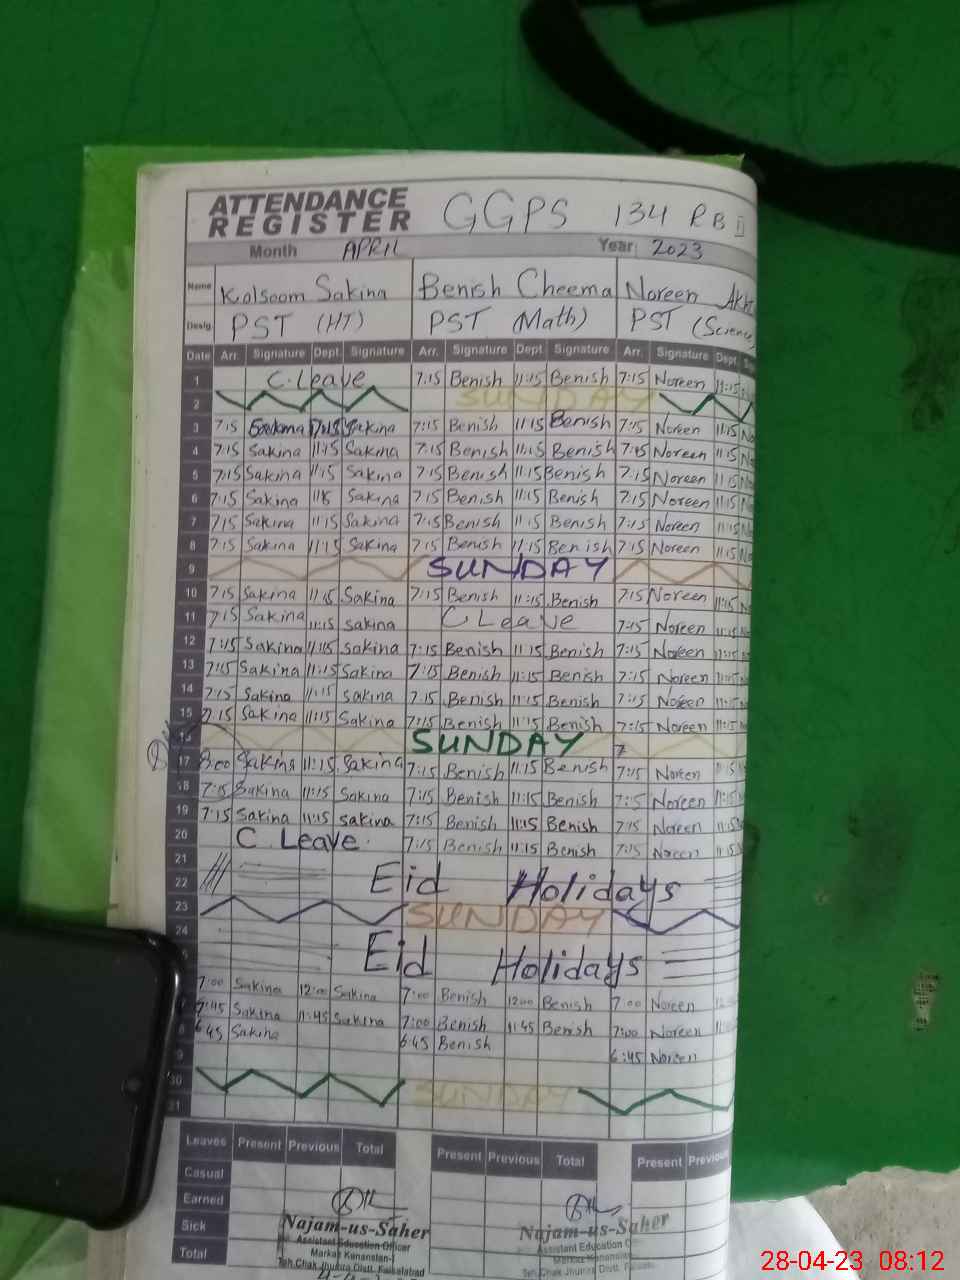 ATTENDANCE REGISTER GGPS 134 RB II
Month APRIL Year: 2023
Name Kolsoom Sakina Benish Cheema Noreen
Desig. PST (HT) PST (Math) PST (Science
Date Arr. Signature Dept. Signature Arr. Signature Dept. Signature Arr. Signature Dept.
1 C. Leave 7:15 Benish 11:15 Benish 7:15 Noreen 11:15
2 SUNDAY
3 7:15 Sakina 7:15 Benish 11:15 Benish 7:15 Noreen 11:15 No
4 7:15 Sakina 11:15 Sakina 7:15 Benish 11:15 Benish 7:15 Noreen 11:15 No
5 7:15 Sakina 11:15 Sakina 7:15 Benish 11:15 Benish 7:15 Noreen 11:15 No
6 7:15 Sakina Sakina 7:15 Benish 11:15 Benish 7:15 Noreen 11:15 No
7 7:15 Sakina 11:15 Sakina 7:15 Benish 11:15 Benish 7:15 Noreen 11:15
8 7:15 Sakina 11:15 Sakina 7:15 Benish 11:15 Benish 7:15 Noreen 11:15 No
9 SUNDAY
10 7:15 Sakina 11:15 Sakina 7:15 Benish 11:15 Benish 7:15 Noreen 11:15
11 7:15 Sakina 11:15 Sakina C Leave 7:15 Noreen 11:15
12 7:15 Sakina 11:15 Sakina 7:15 Benish 11:15 Benish 7:15 Noreen 11:15
13 7:15 Sakina 11:15 Sakina 7:15 Benish 11:15 Benish 7:15 Noreen
14 7:15 Sakina 11:15 Sakina 7:15 Benish 11:15 Benish 7:15 Noreen 11:15
15 7:15 Sakina 11:15 Sakina 7:15 Benish 11:15 Benish 7:15 Noreen 11:15
16 SUNDAY 7
17 8:00 Sakina 11:15 Sakina 7:15 Benish 11:15 Benish 7:15 Noreen
18 7:15 Sakina 11:15 Sakina 7:15 Benish 11:15 Benish 7:15 Noreen 11:15
19 7:15 Sakina 11:15 Sakina 7:15 Benish 11:15 Benish 7:15 Noreen 11:15
20 C Leave. 7:15 Benish 11:15 Benish 7:15 Noreen 11:15
21
22 Eid Holidays
23 SUNDAY
24
5 Eid Holidays
7:00 Sakina 12:00 Sakina 7:00 Benish 12:00 Benish 7:00 Noreen
7:45 Sakina 11:45 Sakina 7:00 Benish 11:45 Benish 7:00 Noreen
8 6:45 Sakina 6:45 Benish 6:45 Noreen
9
30 SUNDAY
31
Leaves Present Previous Total Present Previous Total Present Previous
Casual
Earned
Sick
Total
Najam-us-Saher Najam-us-Saher
Assistant Education Officer Assistant Education
Markaz Kananstan-I Markaz Kananstan-
Teh.Chak Jhumra Distt. Faisalabad Teh.Chak Jhumra Distt.
28-04-23 08:12